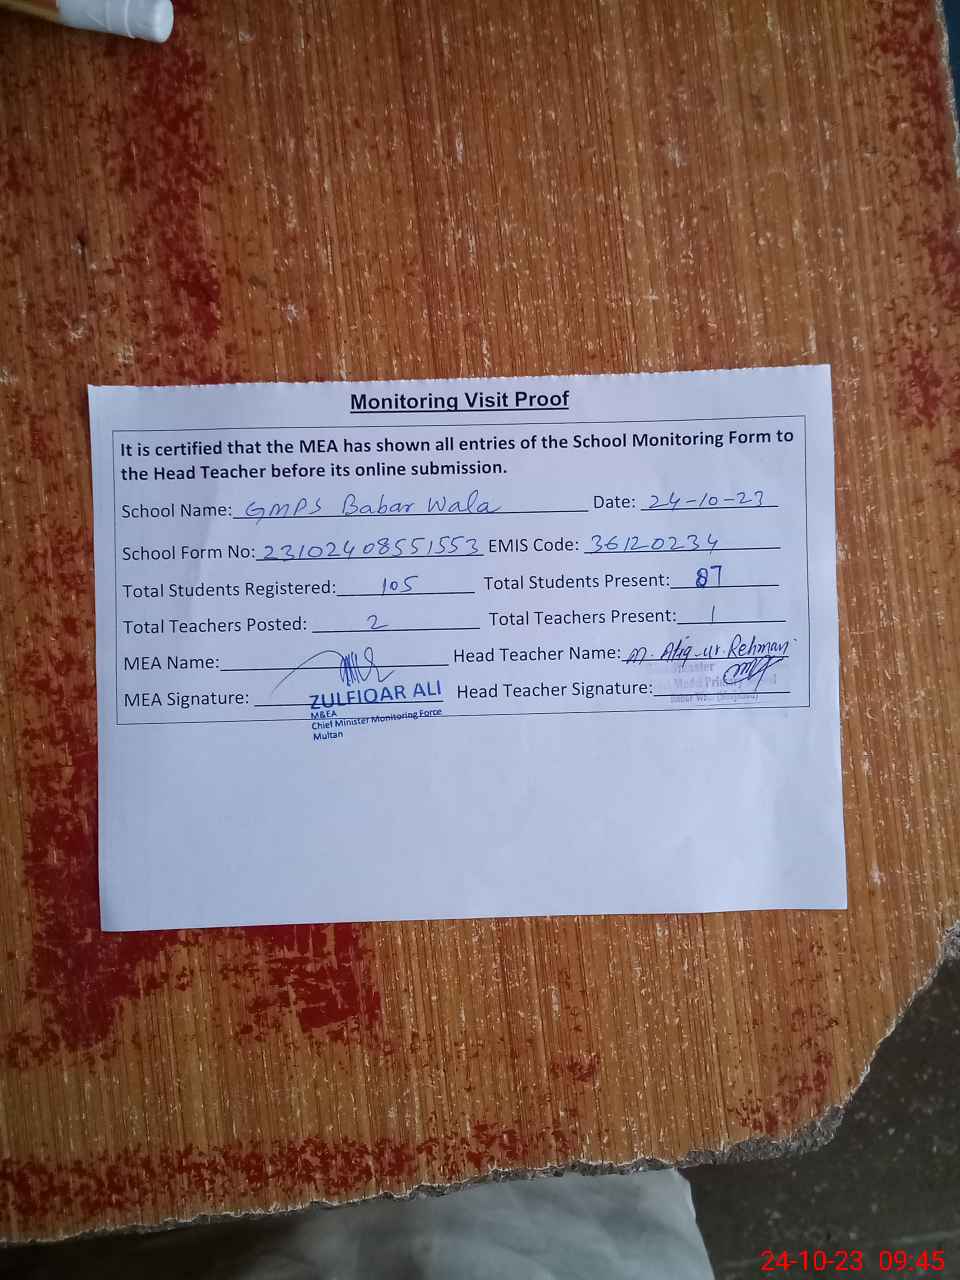 Monitoring Visit Proof
It is certified that the MEA has shown all entries of the School Monitoring Form to
the Head Teacher before its online submission.
School Name: GMPS Babar Wala Date: 24-10-23
School Form No: 23102408551553 EMIS Code: 36120234
Total Students Registered: 105 Total Students Present: 87
Total Teachers Posted: 2 Total Teachers Present: 1
MEA Name: Head Teacher Name: M. Atiq-ur-Rehman
MEA Signature: Head Teacher Signature:
ZULFIQAR ALI
M&EA
Chief Minister Monitoring Force
Multan
24-10-23 09:45